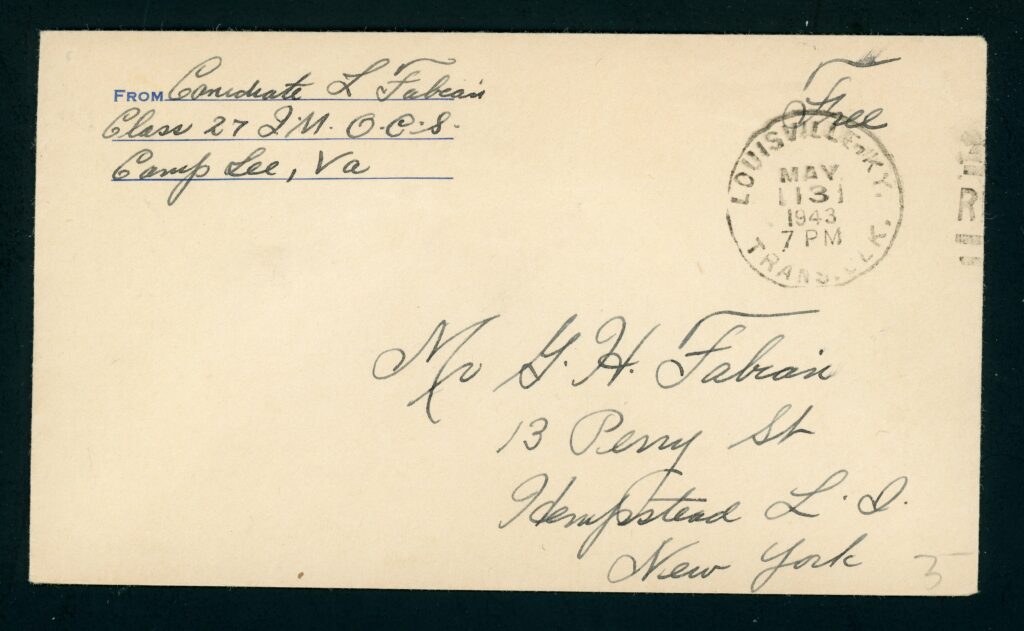 FROM Canidate L Fabian
Class 27 Q.M. O.C.S.
Camp Lee, Va
Free
LOUISVILLE, KY.
MAY
13
1943
7 PM
TRANS. CLK.
R
Mr G. H. Fabian
13 Perry St
Hempstead L. I.
New York
5